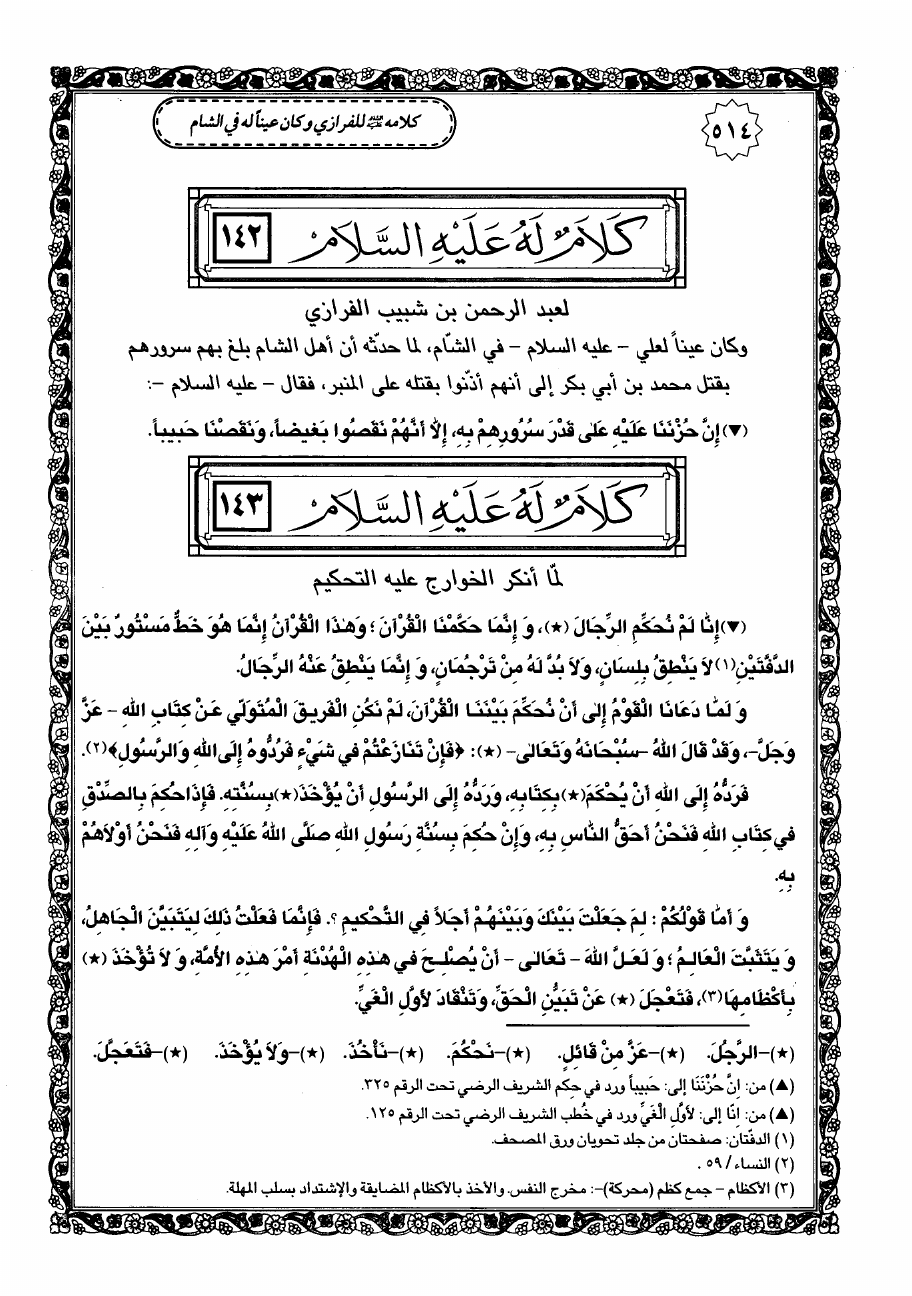 ٥١٤
كلامه عليه السلام للفرازي وكان عيناً له في الشام
كَلَامٌ لَهُ عَلَيْهِ السَّلَامُ ١٤٢
لعبد الرحمن بن شبيب الفرازي
وكان عيناً لعلي - عليه السلام - في الشّام، لما حدثه أن أهل الشام بلغ بهم سرورهم
بقتل محمد بن أبي بكر إلى أنهم أذّنوا بقتله على المنبر، فقال - عليه السلام -:
(▼) إِنَّ حُزْنَنَا عَلَيْهِ عَلىٰ قَدْرِ سُرُورِهِمْ بِهِ، إِلاَّ أَنَّهُمْ نَقَصُوا بَغيضاً، وَنَقَصْنَا حَبيباً.
كَلَامٌ لَهُ عَلَيْهِ السَّلَامُ ١٤٣
لمّا أنكر الخوارج عليه التحكيم
(▼) إِنّٰا لَمْ نُحَكِّمِ الرِّجَالَ (★)، وَ إِنَّمَا حَكَّمْنَا الْقُرْآنَ؛ وَهٰذَا الْقُرْآنُ إِنَّمَا هُوَ خَطٌّ مَسْتُورٌ بَيْنَ
الدَّفَّتَيْنِ(١) لاَ يَنْطِقُ بِلِسَانٍ، وَلاَ بُدَّ لَهُ مِنْ تَرْجُمَانٍ، وَ إِنَّمَا يَنْطِقُ عَنْهُ الرِّجَالُ.
وَ لَمّٰا دَعَانَا الْقَوْمُ إِلىٰ أَنْ نُحَكِّمَ بَيْنَنَا الْقُرْآنَ، لَمْ نَكُنِ الْفَريقَ الْمُتَوَلّي عَنْ كِتَابِ اللهِ - عَزَّ
وَجَلَّ-، وَقَدْ قَالَ اللهُ -سُبْحَانَهُ وَتَعَالىٰ- (★): ﴿فَإِنْ تَنَازَعْتُمْ في شَيْءٍ فَرُدُّوهُ إِلَى اللهِ وَالرَّسُولِ﴾(٢).
فَرَدُّهُ إِلَى اللهِ أَنْ يُحْكَمَ(★) بِكِتَابِهِ، وَرَدُّهُ إِلَى الرَّسُولِ أَنْ يُؤْخَذَ(★) بِسُنَّتِهِ. فَإِذَا حُكِمَ بِالصِّدْقِ
في كِتَابِ اللهِ فَنَحْنُ أَحَقُّ النّٰاسِ بِهِ، وَإِنْ حُكِمَ بِسُنَّةِ رَسُولِ اللهِ صَلَّى اللهُ عَلَيْهِ وَآلِهِ فَنَحْنُ أَوْلاَهُمْ
بِهِ.
وَ أَمّٰا قَوْلُكُمْ: لِمَ جَعَلْتَ بَيْنَكَ وَبَيْنَهُمْ أَجَلاً فِي التَّحْكيمِ؟. فَإِنَّمَا فَعَلْتُ ذَلِكَ لِيَتَبَيَّنَ الْجَاهِلُ،
وَ يَتَثَبَّتَ الْعَالِمُ؛ وَ لَعَلَّ اللهَ - تَعَالىٰ - أَنْ يُصْلِحَ في هٰذِهِ الْهُدْنَةِ أَمْرَ هٰذِهِ الأُمَّةِ، وَ لاَ تُؤْخَذَ (★)
بِأَكْظَامِهَا(٣)، فَتَعْجَلَ (★) عَنْ تَبَيُّنِ الْحَقِّ، وَتَنْقَادَ لأَوَّلِ الْغَيِّ.
(★)-الرَّجُلَ. (★)-عَزَّ مِنْ قَائِلٍ. (★)-نَحْكُمَ. (★)-نَأْخُذَ. (★)-وَلاَ يُؤْخَذَ. (★)-فَتَعَجَّلَ.
(▲) من: إِنَّ حُزْنَنَا إلى: حَبيباً ورد في حِكم الشريف الرضي تحت الرقم ٣٢٥.
(▲) من: إِنّٰا إلى: لأَوَّلِ الْغَيِّ ورد في خُطب الشريف الرضي تحت الرقم ١٢٥.
(١) الدفّتان: صفحتان من جلد تحويان ورق المصحف.
(٢) النساء / ٥٩ .
(٣) الأكظام - جمع كظم (محركة)-: مخرج النفس. والأخذ بالأكظام المضايقة والإشتداد بسلب المهلة.